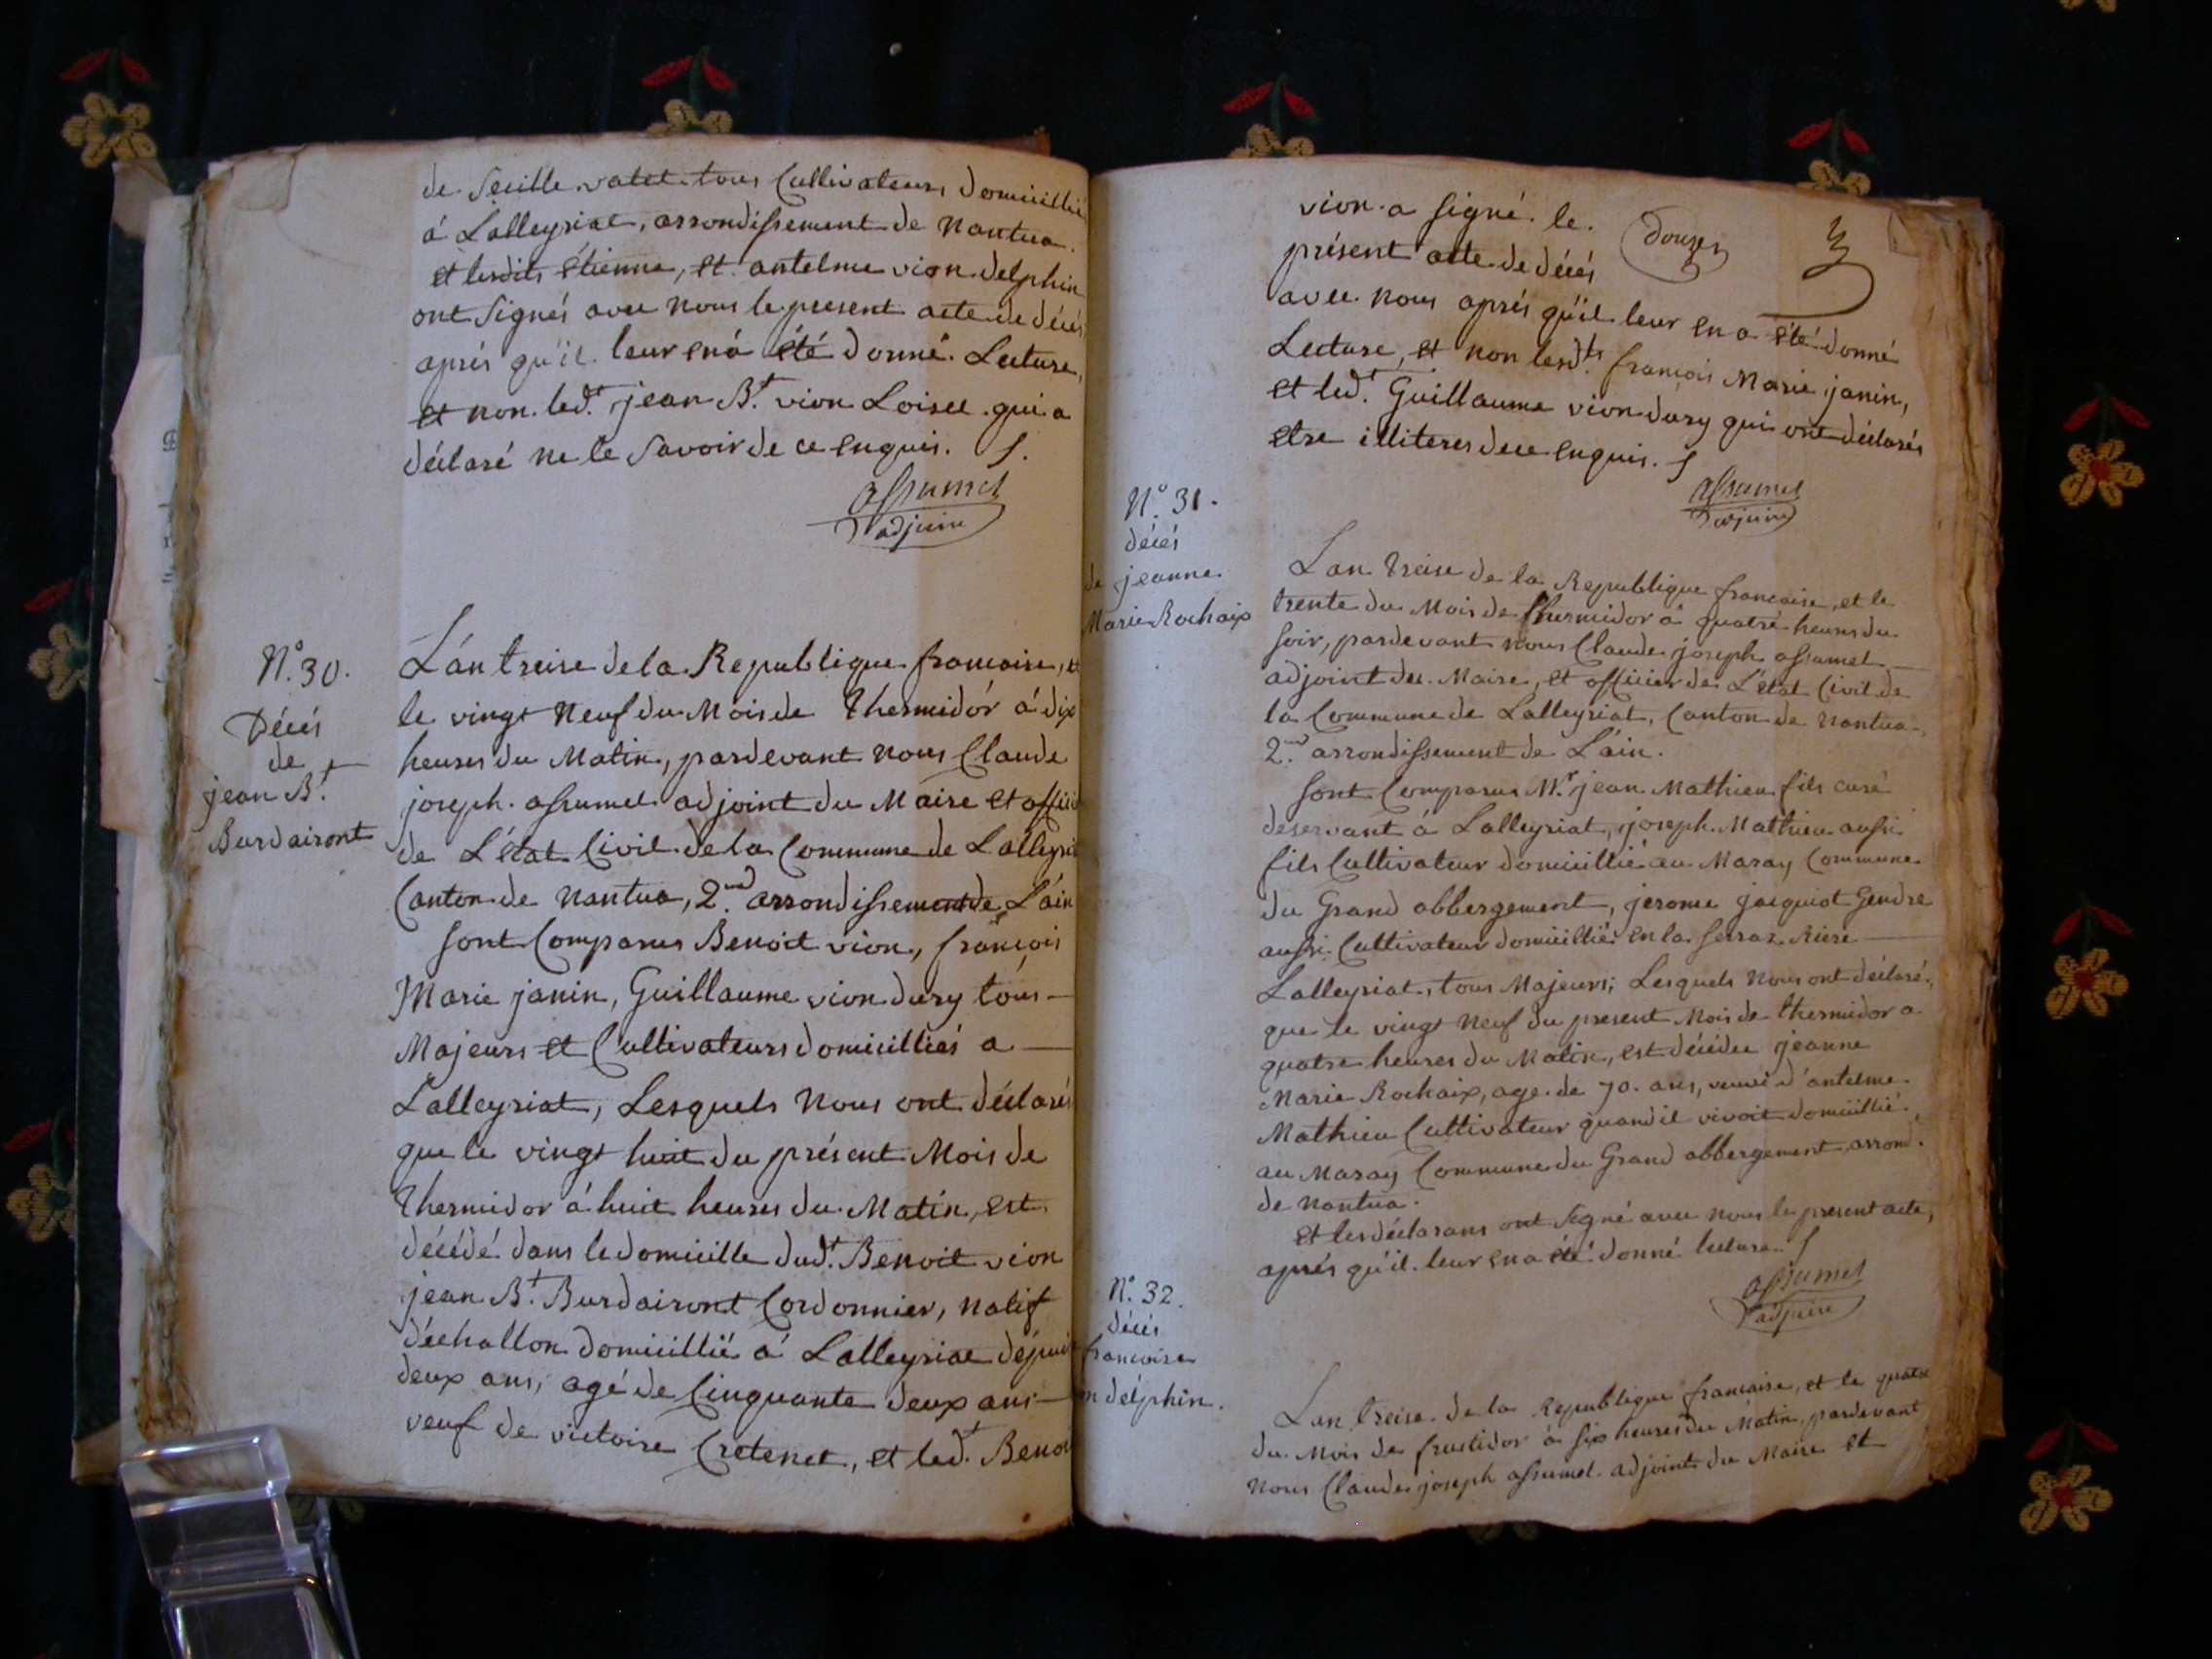 de Seille valet tous Cultivateurs domicillié
á Lalleyriat, arrondissement de Nantua.
et lesdits étienne, et antelme vion delphin
ont signés avec nous le present acte de décés
aprés qu'il leur en á été donné Lecture,
et non led.t jean B.t vion Loisel qui a
déclaré ne le savoir de ce enquis.
assumel
adjoint
N.o 30.
Décés
de
jean B.t
Burdairont
L'án treise de la Republique francaise, et
le vingt Neuf du Mois de Thermidór á dix
heures du Matin, pardevant nous Claude
joseph assumel adjoint du Maire et officié
de L'état Civil de la Commune de Lalleyri
Canton de Nantua, 2.nd arrondissement de L'áin
sont Comparus Benoit vion, francois
Marie janin, Guillaume vion dury tous
Majeurs et Cultivateurs domicilliés a
Lalleyriat, Lesquels Nous ont déclarés
que le vingt huit du présent Mois de
Thermidor á huit heures du Matin, est
décédé dans le domicille dud.t Benoit vion
jean B.t Burdairont Cordonnier, natif
d'échallon domicillié á Lalleyriat dépuis
deux ans, agé de Cinquante deux ans
veuf de victoire Cretenet, et led.t Benoi
vion a signé le
présent acte de décés
douze
avec nous aprés qu'il leur en a été donné
Lecture, et non lesd.ts francois Marie janin,
et led.t Guillaume vion dury qui ont déclarés
etre illiteres de ce enquis.
assumel
adjoint
N.o 31.
décés
de jeanne
Marie Rochaix
L'an treise de la Republique francaise, et le
trente du Mois de thermidor á quatre heures du
soir, pardevant nous Claude joseph assumel
adjoint du Maire, et officier de L'état Civil de
la Commune de Lalleyriat, Canton de Nantua
2.nd arrondissement de L'áin.
sont Comparus M.r jean Mathieu fils curé
deservant á Lalleyriat, joseph Mathieu aussi
fils Cultivateur domicillié au Maray Commune
du Grand abbergement, jerome jacquiot Gendre
aussi Cultivateur domicillié en la serraz Riere
Lalleyriat, tous Majeurs; Lesquels Nous ont déclaré,
que le vingt Neuf du present Mois de thermidor a
quatre heures du Matin, est décédée jeanne
Marie Rochaix, age de 70. ans, veuve d'antelme
Mathieu Cultivateur quand il vivoit domicillié
au Maray Commune du Grand abbergement, arrond.t
de Nantua.
et les déclarans ont signé avec nous le present acte,
aprés qu'il leur en a été donné lecture.
assumel
adjoint
N.o 32.
décés
francoise
n delphin.
L'an treise de la Republique francaise, et le quatre
du Mois de fructidor á six heures du Matin, pardevant
nous Claude joseph assumel adjoint du Maire et